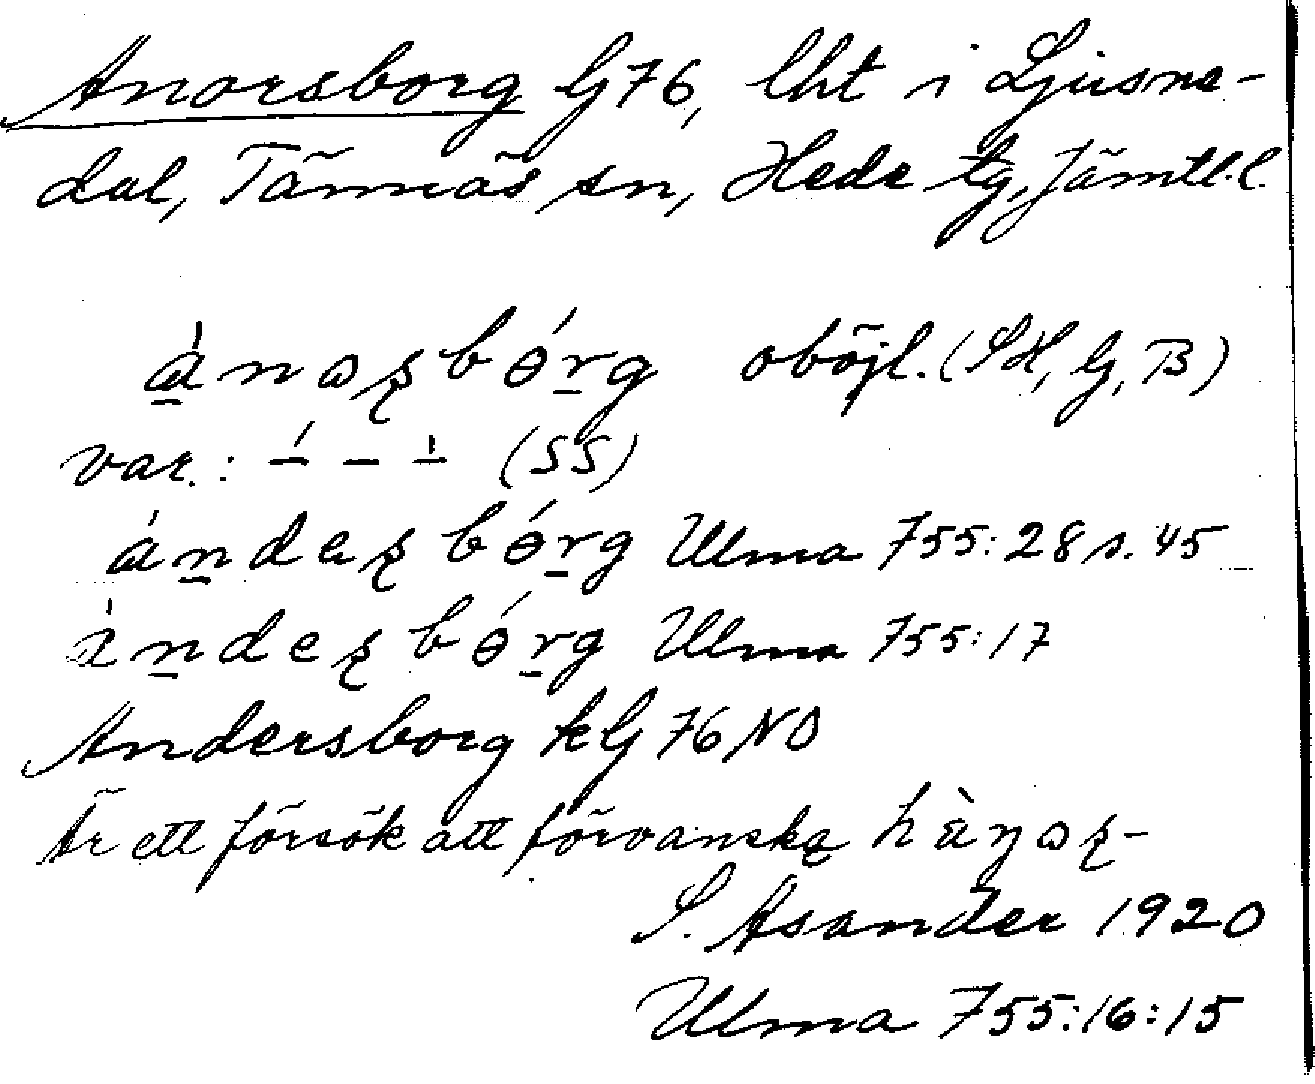 Anorsborg G 76, lht i Ljusne-
dal, Tännäs sn, Hede tg, Jämtl. l.
ánɷʂbórg oböjl. (SH, G, B)
var.: – – – (SS)
ándeʂbórg Ulma 755:28 s. 45
ándeʂbórg Ulma 755:17
Andersborg kG 76 NO
Är ett försök att försvenska hàŋɷʂ-
S. Asander 1920
Ulma 755:16:15